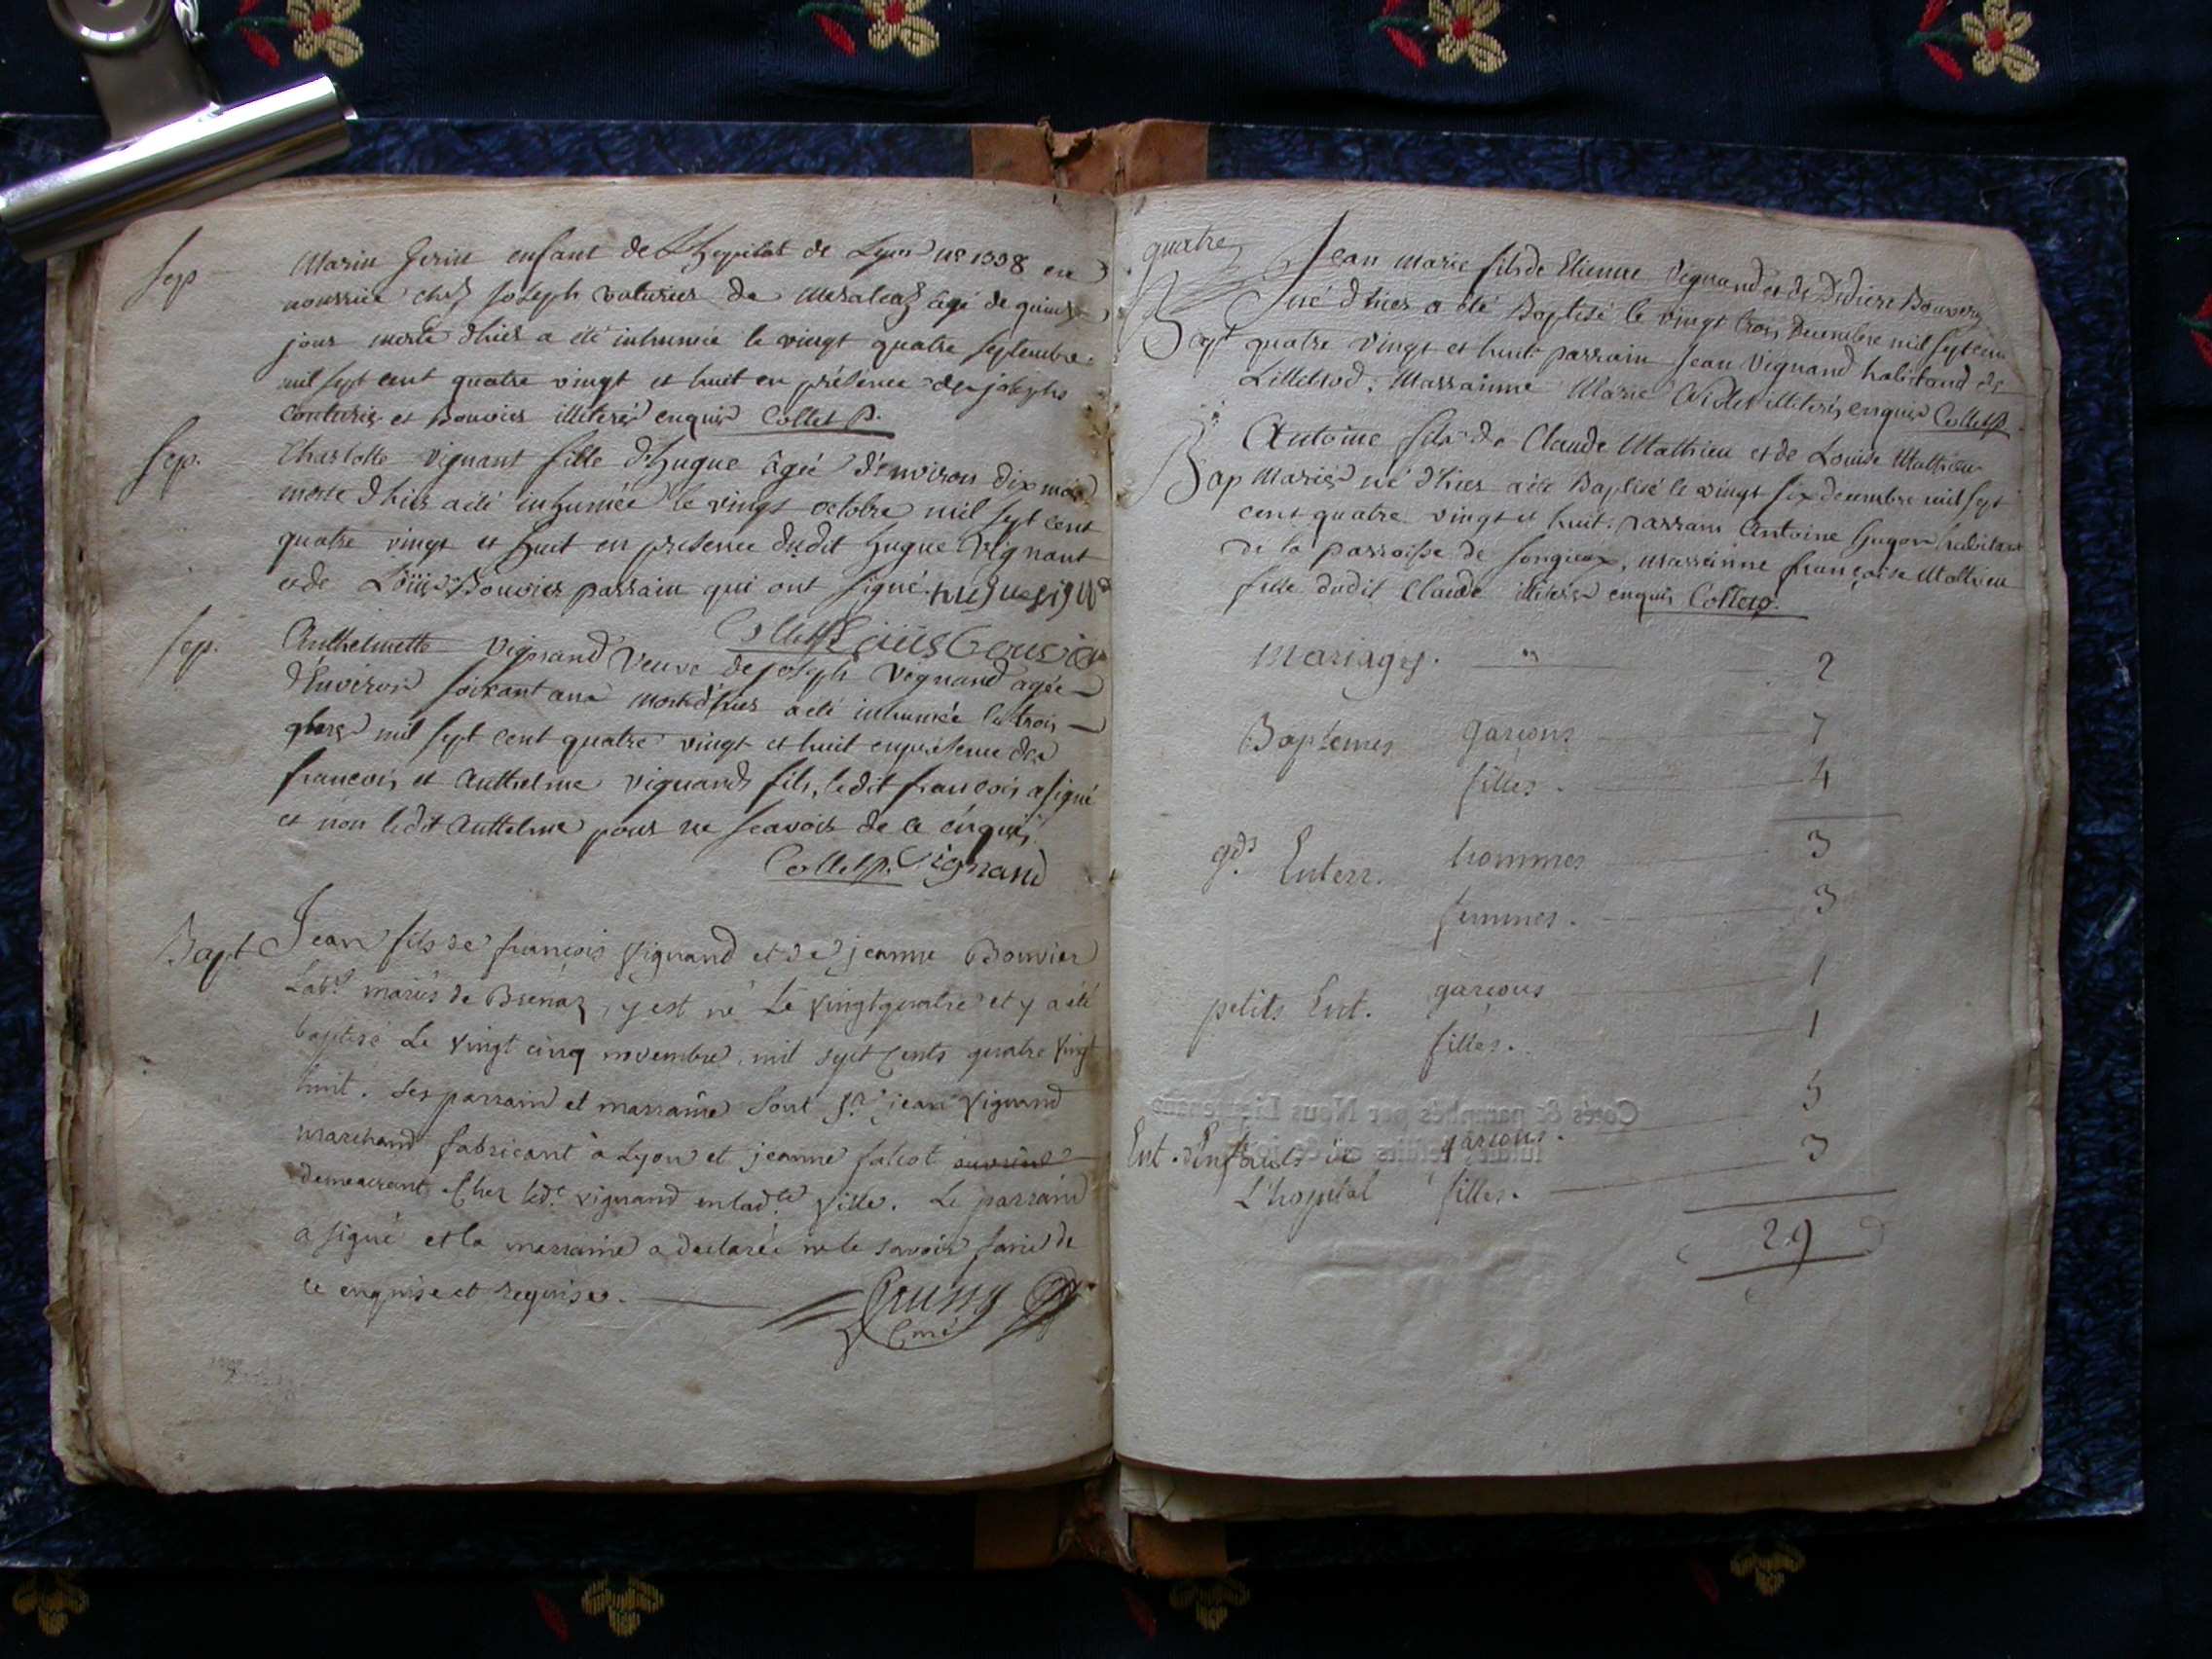 Sep
Marin Gerin enfant de L'hopital de Lyon no 1398 en
nourrice chez Joseph voturier de Meraleaz agé de quinze
jour morte d'hier a été inhumée le vingt quatre septembre
mil sept cent quatre vingt et huit en présence des josephs
couturier et Bouvier illiterés enquis Collet p.
Sep.
Charlotte Vignant fille d'hugue âgée d'environ dix mois
morte d'hier a été inhumée le vingt octobre mil sept cent
quatre vingt et huit en presence dudit hugue Vignant
et de Loüis Bouvier parrain qui ont signé.
Collet p. Loüis Bouvier
Sep.
Anthelmette Vignand Veuve de joseph Vignand agée
d'Environ soixant ans morte d'hier a été inhumée le trois
mil sept cent quatre vingt et huit en présence des
francois et Anthelme vignand fils, ledit francois a signé
et non ledit Anthelme pour ne scavoir de ce enquis
Collet p. Vignand
Bapt
Jean fils de françois Vignand et de jeanne Bouvier
Labrs mariés de Brenaz, y est né Le vingtquatre et y a été
baptisé Le vingt cinq novembre mil sept Cents quatre vingt
huit. ses parrain et marraine sont Sr jean Vignand
marchand fabricant à Lyon et jeanne falcot
demeurant chez ledt vignand en ladte ville. Le parrain
a signé et la marraine a declarée ne le savoir faire de
ce enquise et requise.
Curé
quatre
Bapt
Jean marie fils de Etienne Vignand et de Didiere Bouvier
né d'hier a été Baptisé le vingt trois Decembre mil sept cent
quatre vingt et huit parrain Jean Vignand habitand de
Lilletrod, Marrainne Marie Violet illiterés enquis Collet p.
Bap
Antoine fils de Claude Mathieu et de Louise Mathieu
Mariés né d'hier a été Baptisé le vingt six decembre mil sept
cent quatre vingt et huit. parrain Antoine hugon habitant
de la parroisse de Songieux, marrainne françoise Mathieu
fille dudit Claude illiterés enquis Collet p.
Mariages. 2
Baptemes garçons 7
filles. 4
gds Enterr. hommes 3
femmes. 3
petits Ent. garçons 1
filles. 1
Ent. d'enfants de garçons. 5
L'hopital filles. 3
29